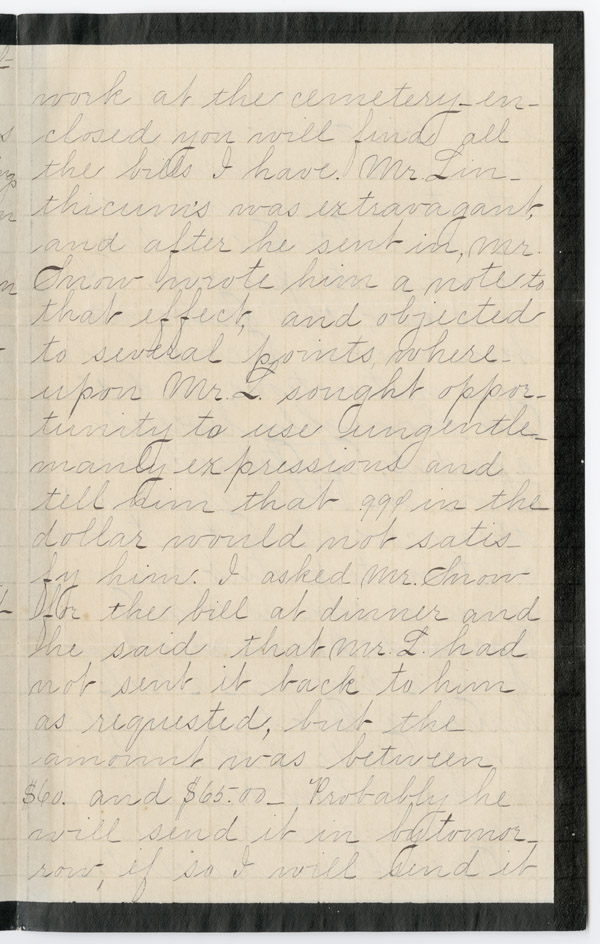 work at the cemetery-en-
closed you will find all
the bills I have. Mr. Lin-
thicum's was extravagant,
and after he sent in, Mr.
Snow wrote him a note to
that effect, and objected
to several points, where-
upon Mr. L. sought oppor-
tunity to use ungentle-
manly expressions and
tell him that 99¢ in the
dollar would not satis-
fy him. I asked Mr. Snow
for the bill at dinner and
he said that Mr. L. had
not sent it back to him
as requested, but the
amount was between
$60. and $65.00- Probably he
will send it in by tomor-
row, if so I will send it